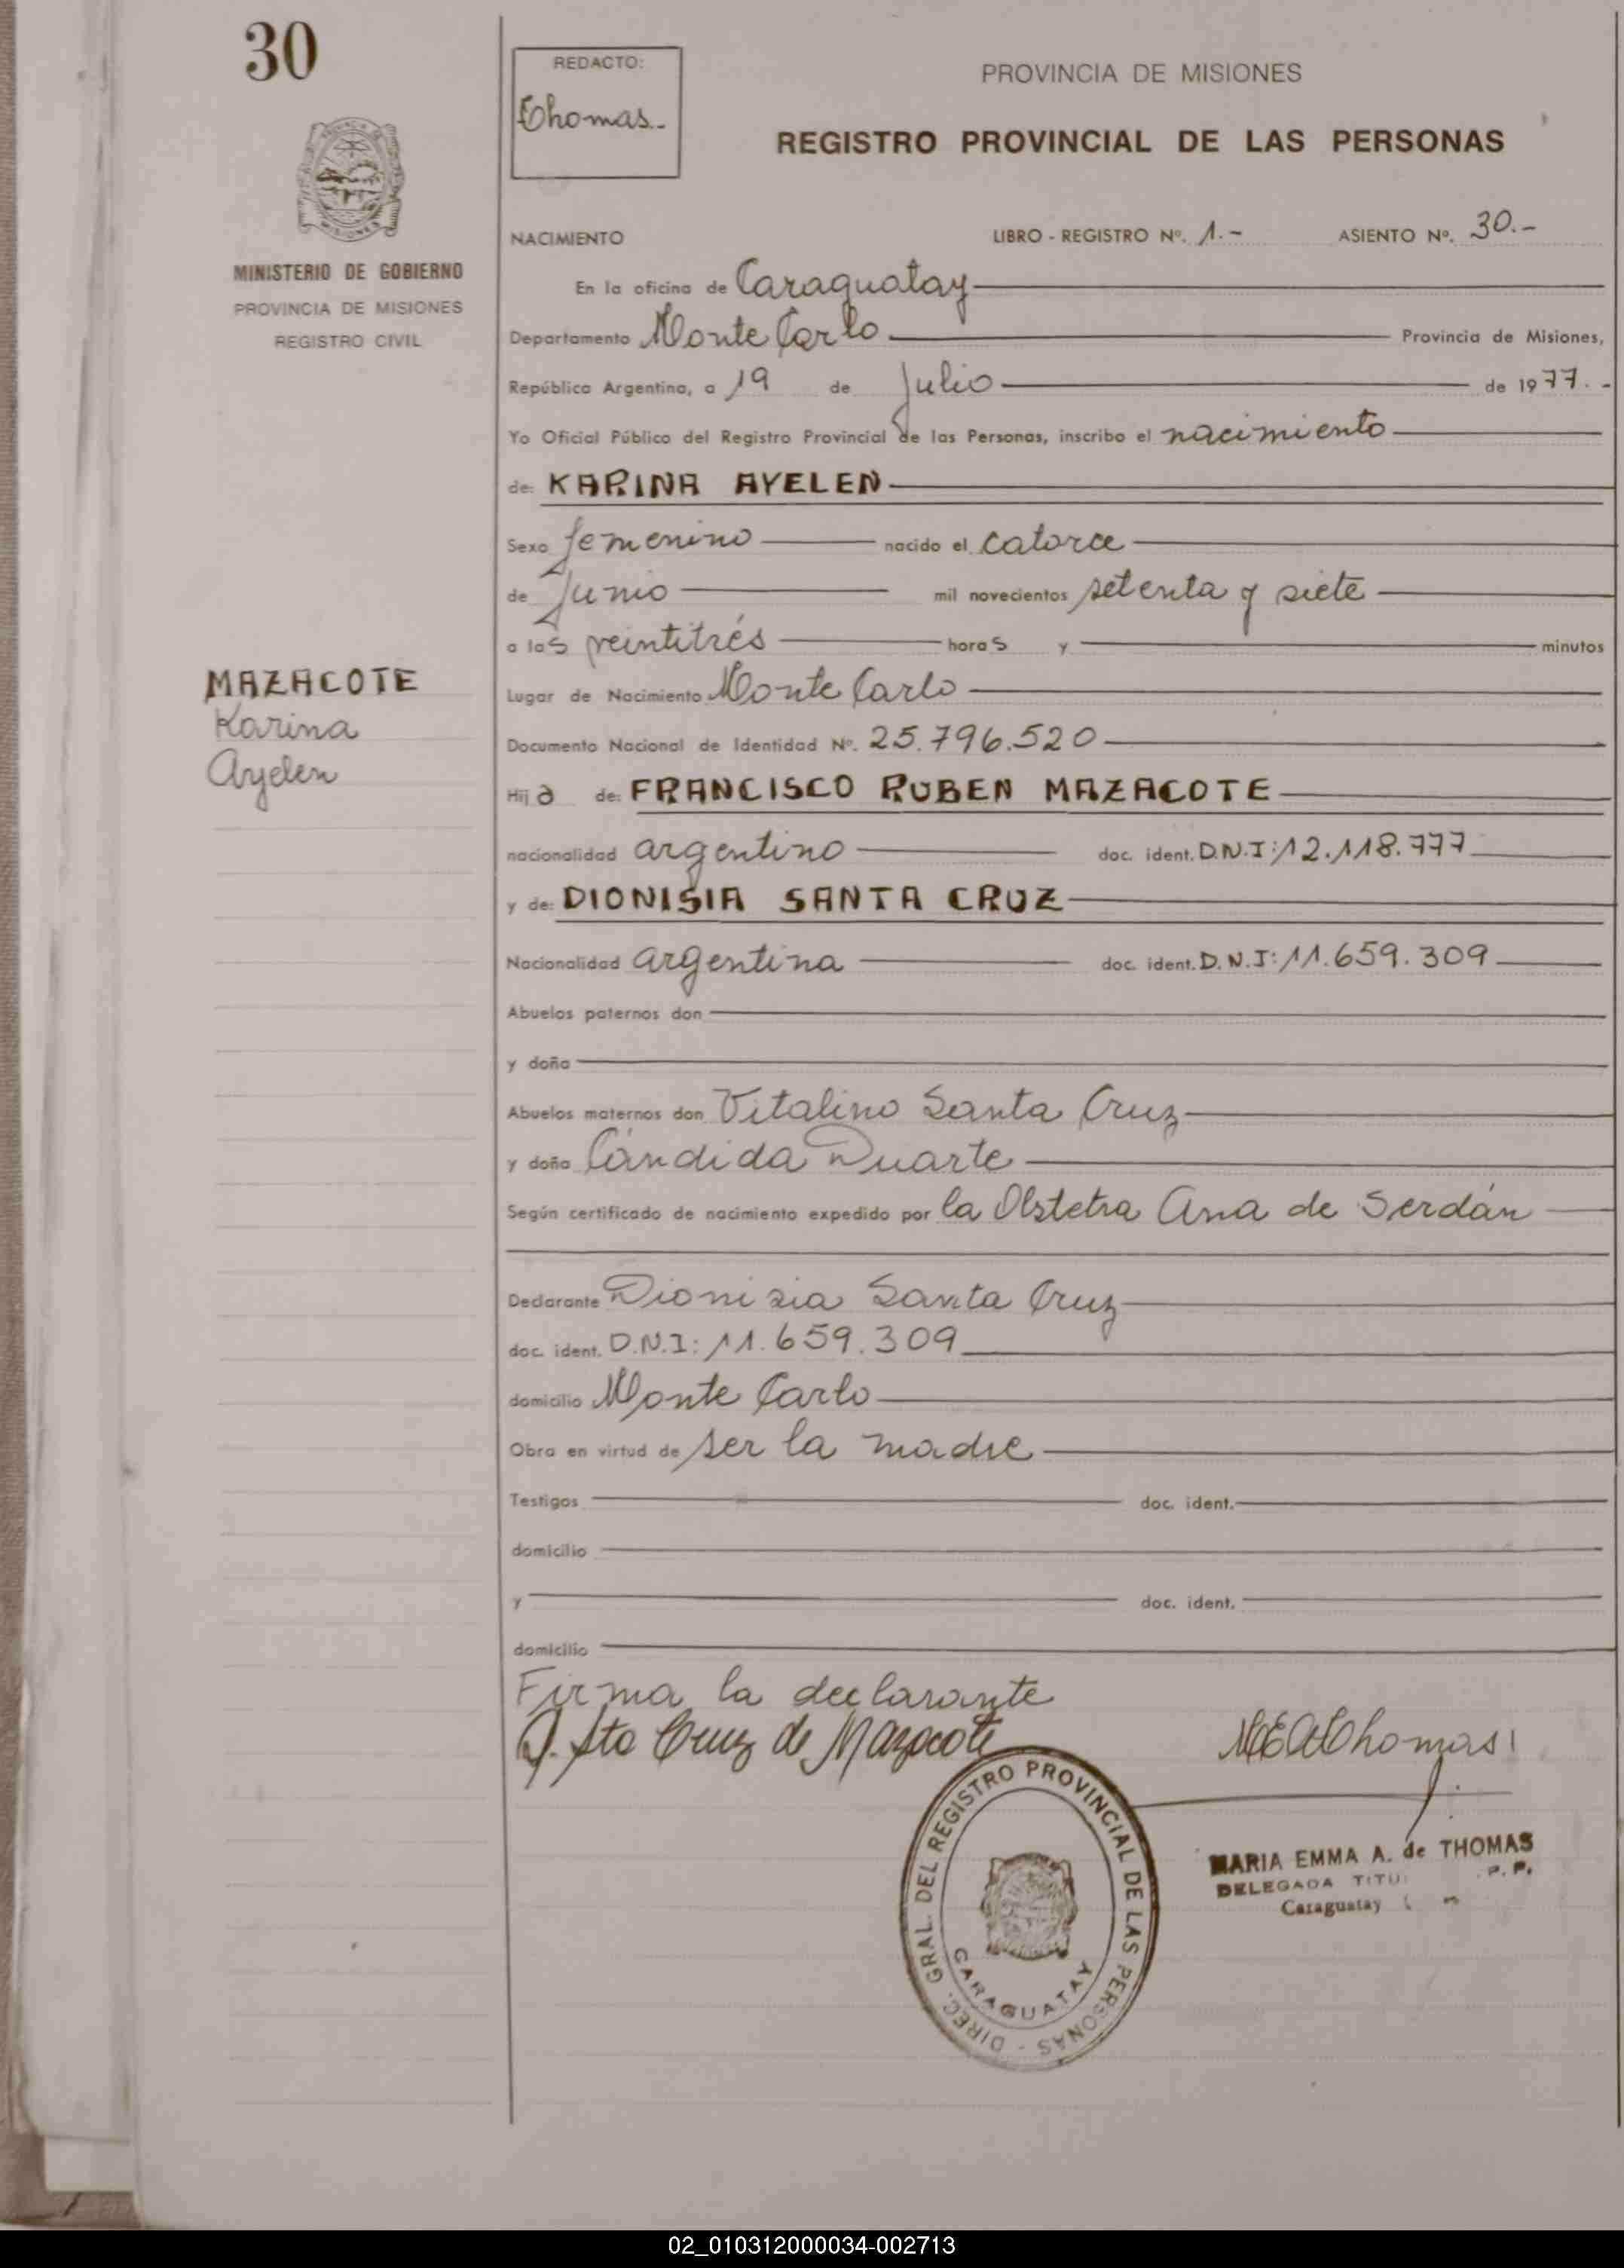 30
REDACTO:
Thomas.-
PROVINCIA DE MISIONES
REGISTRO PROVINCIAL DE LAS PERSONAS
MISIONES
MINISTERIO DE GOBIERNO
PROVINCIA DE MISIONES
REGISTRO CIVIL
NACIMIENTO LIBRO - REGISTRO Nº. 1.- ASIENTO Nº. 30.-
En la oficina de Caraguatay
Departamento Monte Carlo Provincia de Misiones,
República Argentina, a 19 de Julio de 1977.-
Yo Oficial Público del Registro Provincial de las Personas, inscribo el nacimiento
de: KARINA AYELEN
Sexo femenino nacido el catorce
de Junio mil novecientos setenta y siete
a las veintitrés horas y minutos
MAZACOTE
Karina
Ayelen
Lugar de Nacimiento Monte Carlo
Documento Nacional de Identidad Nº. 25.796.520
Hija de: FRANCISCO RUBEN MAZACOTE
nacionalidad argentino doc. ident. D.N.I: 12.118.777
y de: DIONISIA SANTA CRUZ
Nacionalidad argentina doc. ident. D.N.I: 11.659.309
Abuelos paternos don
y doña
Abuelos maternos don Vitalino Santa Cruz
y doña Cándida Duarte
Según certificado de nacimiento expedido por la Obstetra Ana de Serdán
Declarante Dionisia Santa Cruz
doc. ident. D.N.I: 11.659.309
domicilio Monte Carlo
Obra en virtud de ser la madre
Testigos doc. ident.
domicilio
y doc. ident.
domicilio
Firma la declarante
D. Sta Cruz de Mazacote
MEAThomas
DIREC. GRAL. DEL REGISTRO PROVINCIAL DE LAS PERSONAS -
CARAGUATAY
MARIA EMMA A. de THOMAS
DELEGADA TITU P.P.
Caraguatay
02_010312000034-002713